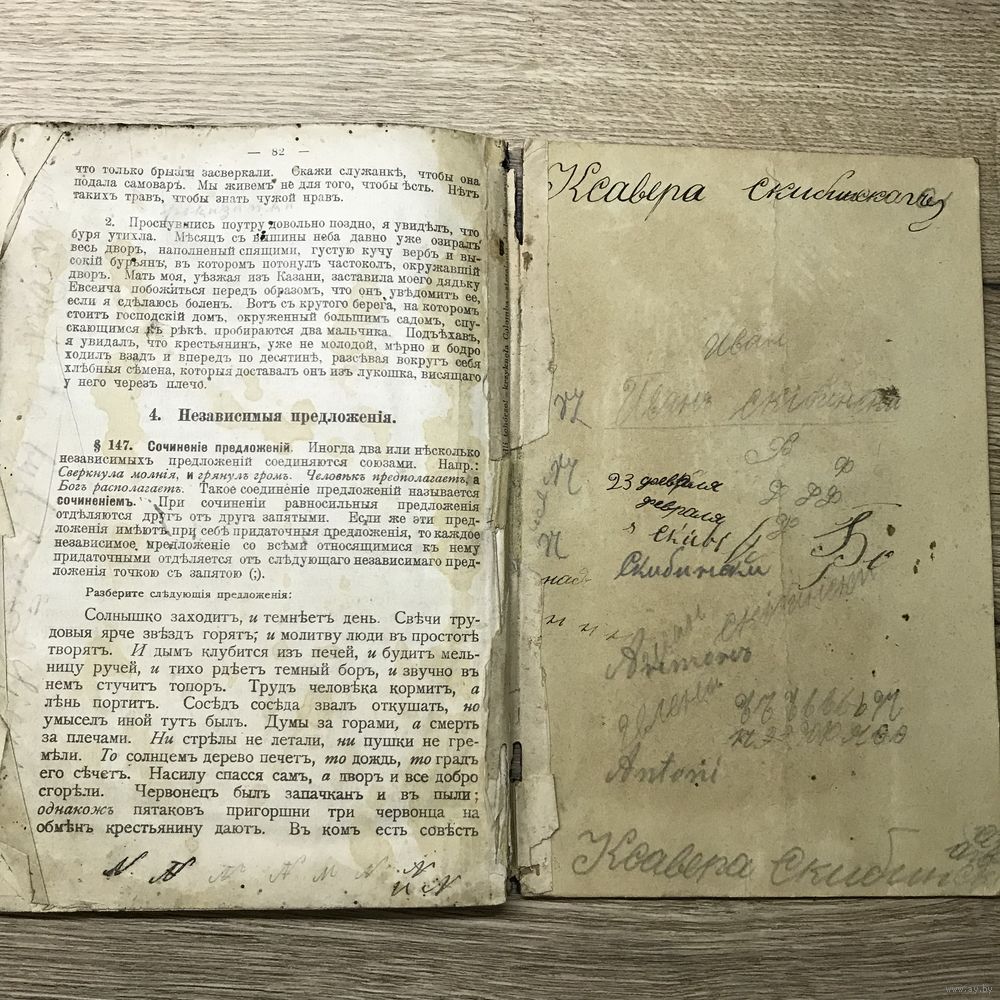 — 82 —
что только брызги засверкали. Скажи служанкѣ, чтобы она
подала самоваръ. Мы живемъ не для того, чтобы ѣсть. Нѣтъ
такихъ травъ, чтобы знать чужой нравъ.
2. Проснувшись поутру довольно поздно, я увидѣлъ, что
буря утихла. Мѣсяцъ съ вышины неба давно уже озиралъ
весь дворъ, наполненный спящими, густую кучу вербъ и вы-
сокій бурьянъ, въ которомъ потонулъ частоколъ, окружавшій
дворъ. Мать моя, уѣзжая изъ Казани, заставила моего дядьку
Евсеича побожиться передъ образомъ, что онъ увѣдомитъ ее,
если я сдѣлаюсь боленъ. Вотъ съ крутого берега, на которомъ
стоитъ господскій домъ, окруженный большимъ садомъ, спу-
скающимся къ рѣкѣ, пробираются два мальчика. Подъѣхавъ,
я увидалъ, что крестьянинъ, уже не молодой, мѣрно и бодро
ходилъ взадъ и впередъ по десятинѣ, разсѣвая вокругъ себя
хлѣбныя сѣмена, которыя доставалъ онъ изъ лукошка, висящаго
у него черезъ плечо.
4. Независимыя предложенія.
§ 147. Сочиненіе предложеній. Иногда два или нѣсколько
независимыхъ предложеній соединяются союзами. Напр.:
Сверкнула молнія, и грянулъ громъ. Человѣкъ предполагаетъ, а
Богъ располагаетъ. Такое соединеніе предложеній называется
сочиненіемъ. При сочиненіи равносильныя предложенія
отдѣляются другъ отъ друга запятыми. Если же эти пред-
ложенія имѣютъ при себѣ придаточныя предложенія, то каждое
независимое предложеніе со всѣми относящимися къ нему
придаточными отдѣляется отъ слѣдующаго независимаго пред-
ложенія точкою съ запятою (;).
Разберите слѣдующія предложенія:
Солнышко заходитъ, и темнѣетъ день. Свѣчи тру-
довыя ярче звѣздъ горятъ; и молитву люди въ простотѣ
творятъ. И дымъ клубится изъ печей, и будитъ мель-
ницу ручей, и тихо рдѣетъ темный боръ, и звучно въ
немъ стучитъ топоръ. Трудъ человѣка кормитъ, а
лѣнь портитъ. Сосѣдъ сосѣда звалъ откушать, но
умыселъ иной тутъ былъ. Думы за горами, а смерть
за плечами. Ни стрѣлы не летали, ни пушки не гре-
мѣли. То солнцемъ дерево печетъ, то дождь, то градъ
его сѣчетъ. Насилу спасся самъ, а дворъ и все добро
сгорѣли. Червонецъ былъ запачканъ и въ пыли;
однакожъ пятаковъ пригоршни три червонца на
обмѣнъ крестьянину даютъ. Въ комъ есть совѣсть
Ксавера скибинскаго
Иван
Иванъ скибински
23 февраля
февраля
Скибински
Антонъ
Antoni
Ксавера Скибин
www.ay.by